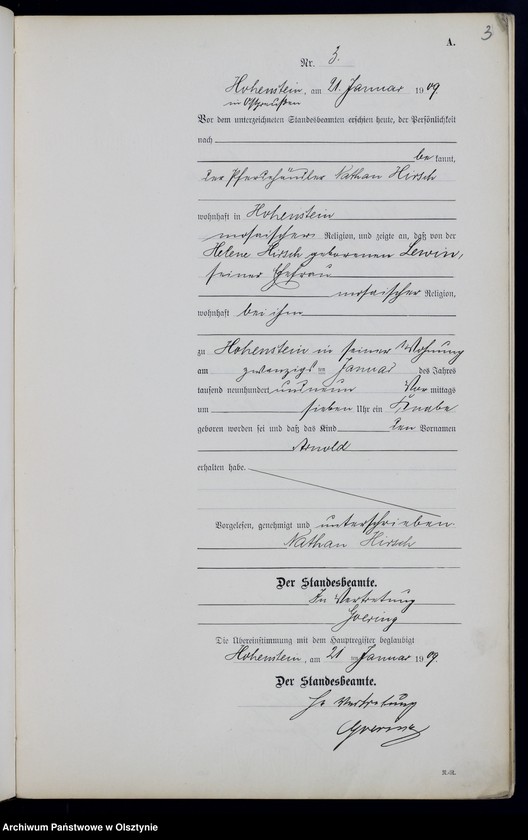 3
A.
Nr. 3.
Hohenstein, am 21 Januar 1909.
in Ostpreußen
Vor dem unterzeichneten Standesbeamten erschien heute, der Persönlichkeit
nach
be kannt,
der Pferdehändler Nathan Hirsch
wohnhaft in Hohenstein
mosaischer Religion, und zeigte an, daß von der
Helene Hirsch geborenen Lewin,
seiner Ehefrau
mosaischer Religion,
wohnhaft bei ihm
zu Hohenstein in seiner Wohnung
am zwanzigsten Januar des Jahres
tausend neunhundert und neun Vor mittags
um sieben Uhr ein Knabe
geboren worden sei und daß das Kind den Vornamen
Arnold
erhalten habe.
Vorgelesen, genehmigt und unterschrieben
Nathan Hirsch
Der Standesbeamte.
In Vertretung
Goering
Die Übereinstimmung mit dem Hauptregister beglaubigt
Hohenstein, am 21 ten Januar 1909.
Der Standesbeamte.
In Vertretung
Goering
Archiwum Państwowe w Olsztynie